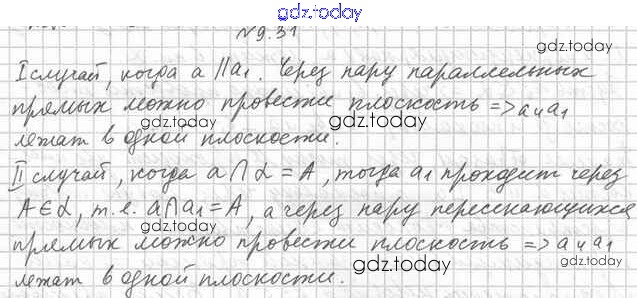 gdz.today
№9.31
gdz.today
I случай, когда a || a₁. Через пару параллельных
прямых можно провести плоскость => a и a₁
gdz.today gdz.today
лежат в одной плоскости.
II случай, когда a ∩ α = A, тогда a₁ проходит через
A ∈ α, т.е. a ∩ a₁ = A, а через пару пересекающихся
gdz.today gdz.today
прямых можно провести плоскость => a и a₁
gdz.today gdz.today
лежат в одной плоскости.